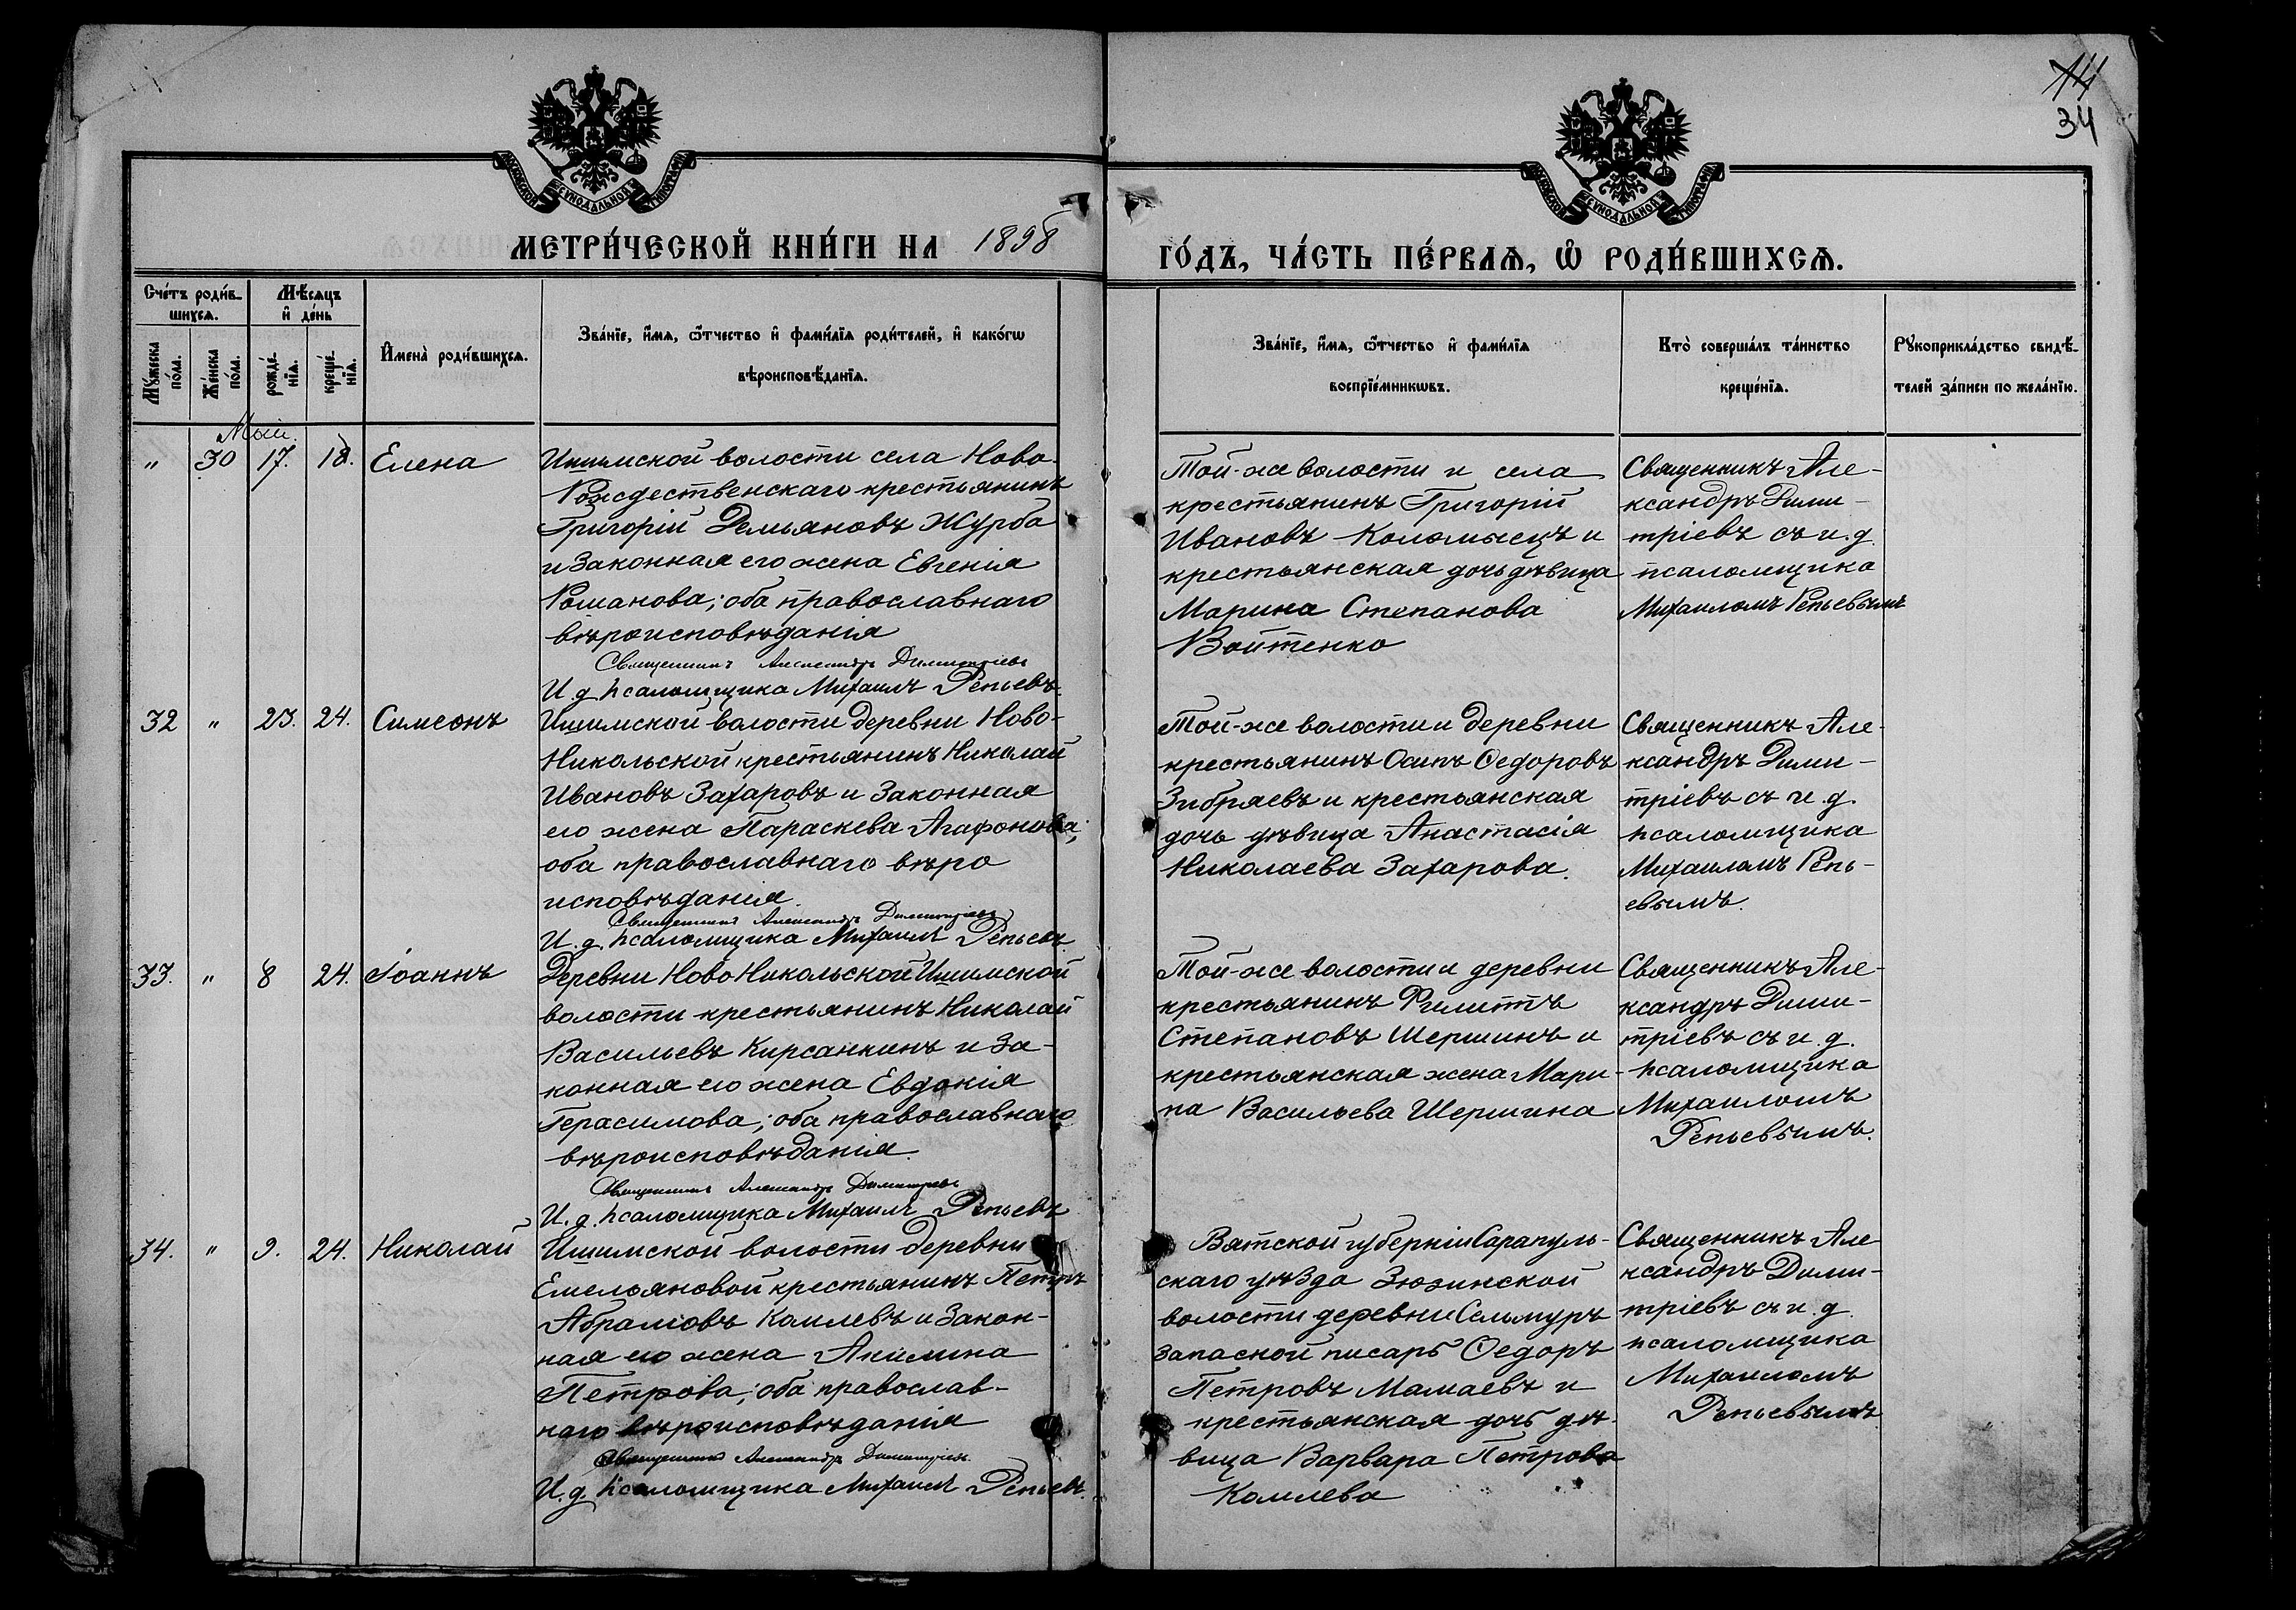 14
34
МОСКОВСКОЙ СѴНОДАЛЬНОЙ ТИПОГРАФІИ
МОСКОВСКОЙ СѴНОДАЛЬНОЙ ТИПОГРАФІИ
МЕТРИ́ЧЕСКОЙ КНИ́ГИ НА 1898
ГО́ДЪ, ЧА́СТЬ ПЕ́РВАѦ, Ѡ҆ РОДИ́ВШИХСѦ.
Сче́тъ роди́в-
шихсѧ.
Мѣ́сѧцъ
и҆ де́нь
Мꙋ́жеска
по́ла.
Же́нска
по́ла.
рожде́-
нїѧ.
креще́-
нїѧ.
И҆мена̀ роди́вшихсѧ.
Зва́нїе, и҆́мѧ, ѻ҆́тчество и҆ фами́лїѧ роди́телей, и҆ како́гѡ
вѣроисповѣ́данїѧ.
Зва́нїе, и҆́мѧ, ѻ҆́тчество и҆ фами́лїѧ
воспрїе́мникѡвъ.
Кто̀ соверша́лъ та́инство
креще́нїѧ.
Рꙋкоприкла́дство свидѣ́-
телей за́писи по жела́нїю.
Май.
" 30 17. 18. Елена
Ишимской волости села Ново-
Рождественскаго крестьянинъ
Григорій Демьяновъ Журба
и законная его жена Евгенія
Романова; оба православнаго
вѣроисповѣданія
Священникъ Александръ Димитріевъ
И. д. псаломщика Михаилъ Репьевъ.
Той-же волости и села
крестьянинъ Григорій
Ивановъ Коломыецъ и
крестьянская дочь дѣвица
Марина Степанова
Войтенко
Священникъ Але-
ксандръ Дими-
тріевъ съ и. д.
псаломщика
Михаиломъ Репьевымъ
32 " 23. 24. Симеонъ
Ишимской волости деревни Ново-
Никольской крестьянинъ Николай
Ивановъ Захаровъ и законная
его жена Параскева Агафонова;
оба православнаго вѣро
исповѣданія.
Священникъ Александръ Димитріевъ
И. д. псаломщика Михаилъ Репьевъ
Той-же волости и деревни
крестьянинъ Осипъ Ѳедоровъ
Зибряевъ и крестьянская
дочь дѣвица Анастасія
Николаева Захарова.
Священникъ Але-
ксандръ Дими-
тріевъ съ и. д.
псаломщика
Михаиломъ Репь-
евымъ.
33. " 8 24. Іоаннъ
Деревни НовоНикольской Ишимской
волости крестьянинъ Николай
Васильевъ Кирсанкинъ и за-
конная его жена Евдокія
Герасимова; оба православнаго
вѣроисповѣданія.
Священникъ Александръ Димитріевъ
И. д. псаломщика Михаилъ Репьевъ
Той-же волости и деревни
крестьянинъ Филиппъ
Степановъ Шершинъ и
крестьянская жена Мари-
на Васильева Шершина
Священникъ Але-
ксандръ Дими-
тріевъ съ и. д.
псаломщика
Михаиломъ
Репьевымъ.
34. " 9. 24. Николай
Ишимской волости деревни
Емельяновой крестьянинъ Петръ
Абрамовъ Комлевъ и закон-
ная его жена Акилина
Петрова; оба православ-
наго вѣроисповѣданія
Священникъ Александръ Димитріевъ
И. д. псаломщика Михаилъ Репьевъ.
Вятской губерніи Сарапуль-
скаго уѣзда Зюзинской
волости деревни
запасной писарь Ѳедоръ
Петровъ Мамаевъ и
крестьянская дочь дѣ-
вица Варвара Петрова
Комлева
Священникъ Але
ксандръ Дими-
тріевъ съ и. д.
псаломщика
Михаиломъ
Репьевымъ